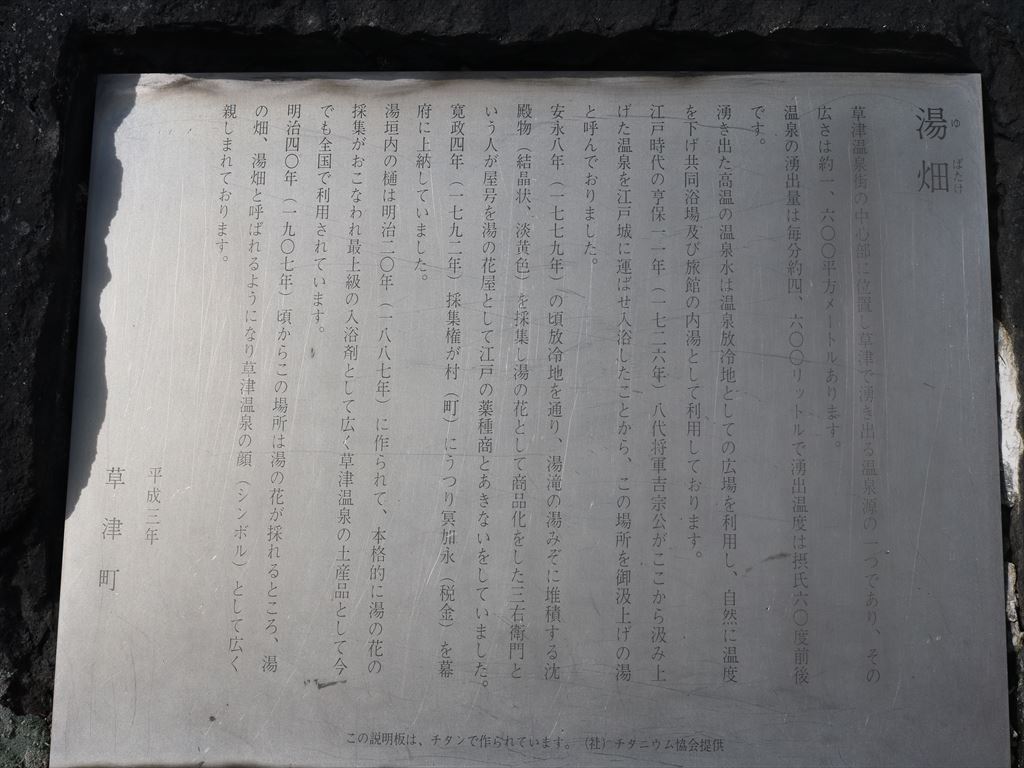 湯畑
ゆばたけ
草津温泉街の中心部に位置し草津で湧き出る温泉源の一つであり、その
広さは約一、六〇〇平方メートルあります。
温泉の湧出量は毎分約四、六〇〇リットルで湧出温度は摂氏六〇度前後
です。
湧き出た高温の温泉水は温泉放冷地としての広場を利用し、自然に温度
を下げ共同浴場及び旅館の内湯として利用しております。
江戸時代の亨保一一年（一七二六年）八代将軍吉宗公がここから汲み上
げた温泉を江戸城に運ばせ入浴したことから、この場所を御汲上げの湯
と呼んでおりました。
安永八年（一七七九年）の頃放冷地を通り、湯滝の湯みぞに堆積する沈
殿物（結晶状、淡黄色）を採集し湯の花として商品化をした三右衛門と
いう人が屋号を湯の花屋として江戸の薬種商とあきないをしていました。
寛政四年（一七九二年）採集権が村（町）にうつり冥加永（税金）を幕
府に上納していました。
湯垣内の樋は明治二〇年（一八八七年）に作られて、本格的に湯の花の
採集がおこなわれ最上級の入浴剤として広く草津温泉の土産品として今
でも全国で利用されています。
明治四〇年（一九〇七年）頃からこの場所は湯の花が採れるところ、湯
の畑、湯畑と呼ばれるようになり草津温泉の顔（シンボル）として広く
親しまれております。
平成三年
草津町
この説明板は、チタンで作られています。（社）チタニウム協会提供